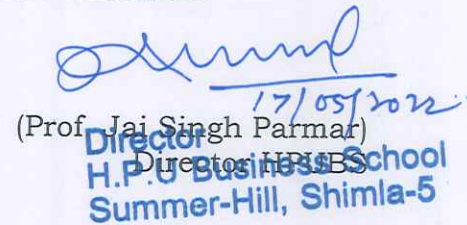 17/05/2022
(Prof. Jai Singh Parmar)
Director
Director HPUBS
H.P.U Business School
Summer-Hill, Shimla-5